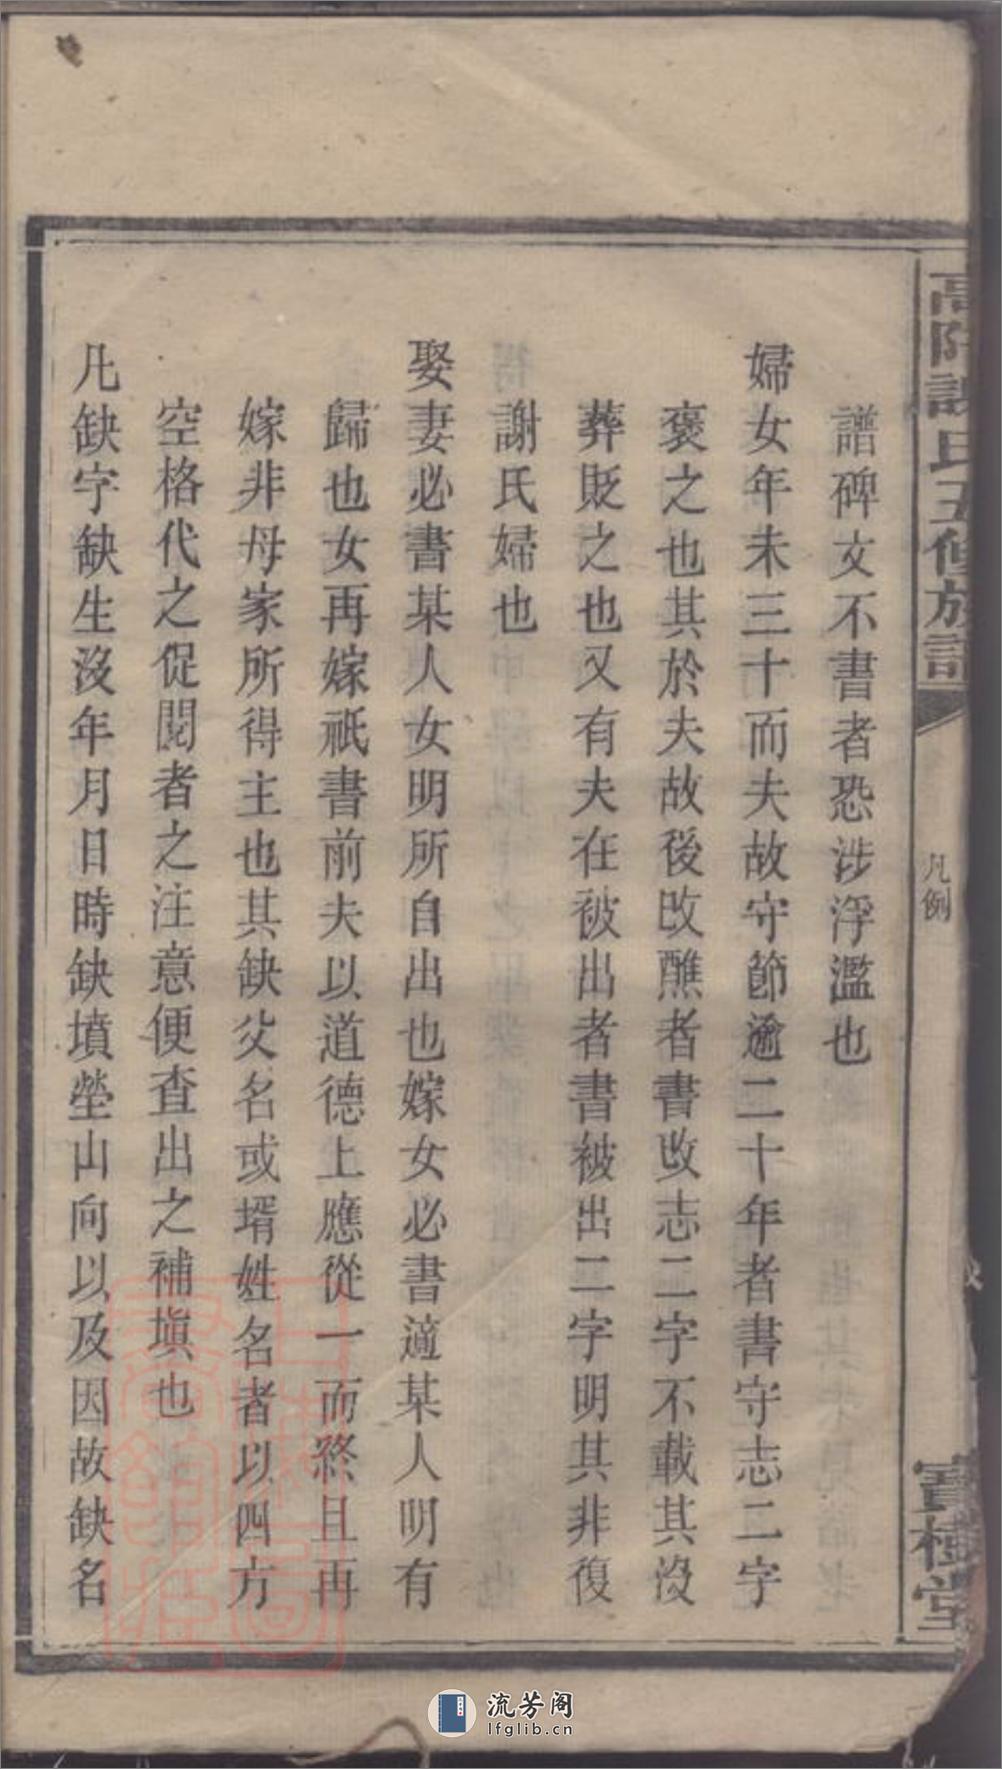 譜碑文不書者恐涉浮濫也
婦女年未三十而夫故守節逾二十年者書守志二字
褒之也其於夫故後改醮者書改志二字不載其沒
葬貶之也又有夫在被出者書被出二字明其非復
謝氏婦也
娶妻必書某人女明所自出也嫁女必書適某人明有
歸也女再嫁祇書前夫以道德上應從一而終且再
嫁非母家所得主也其缺父名或壻姓名者以四方
空格代之促閱者之注意便查出之補填也
凡缺字缺生沒年月日時缺墳塋山向以及因故缺名
氏五修族譜
凡例
寶桂堂
流芳阁
lfglib.cn